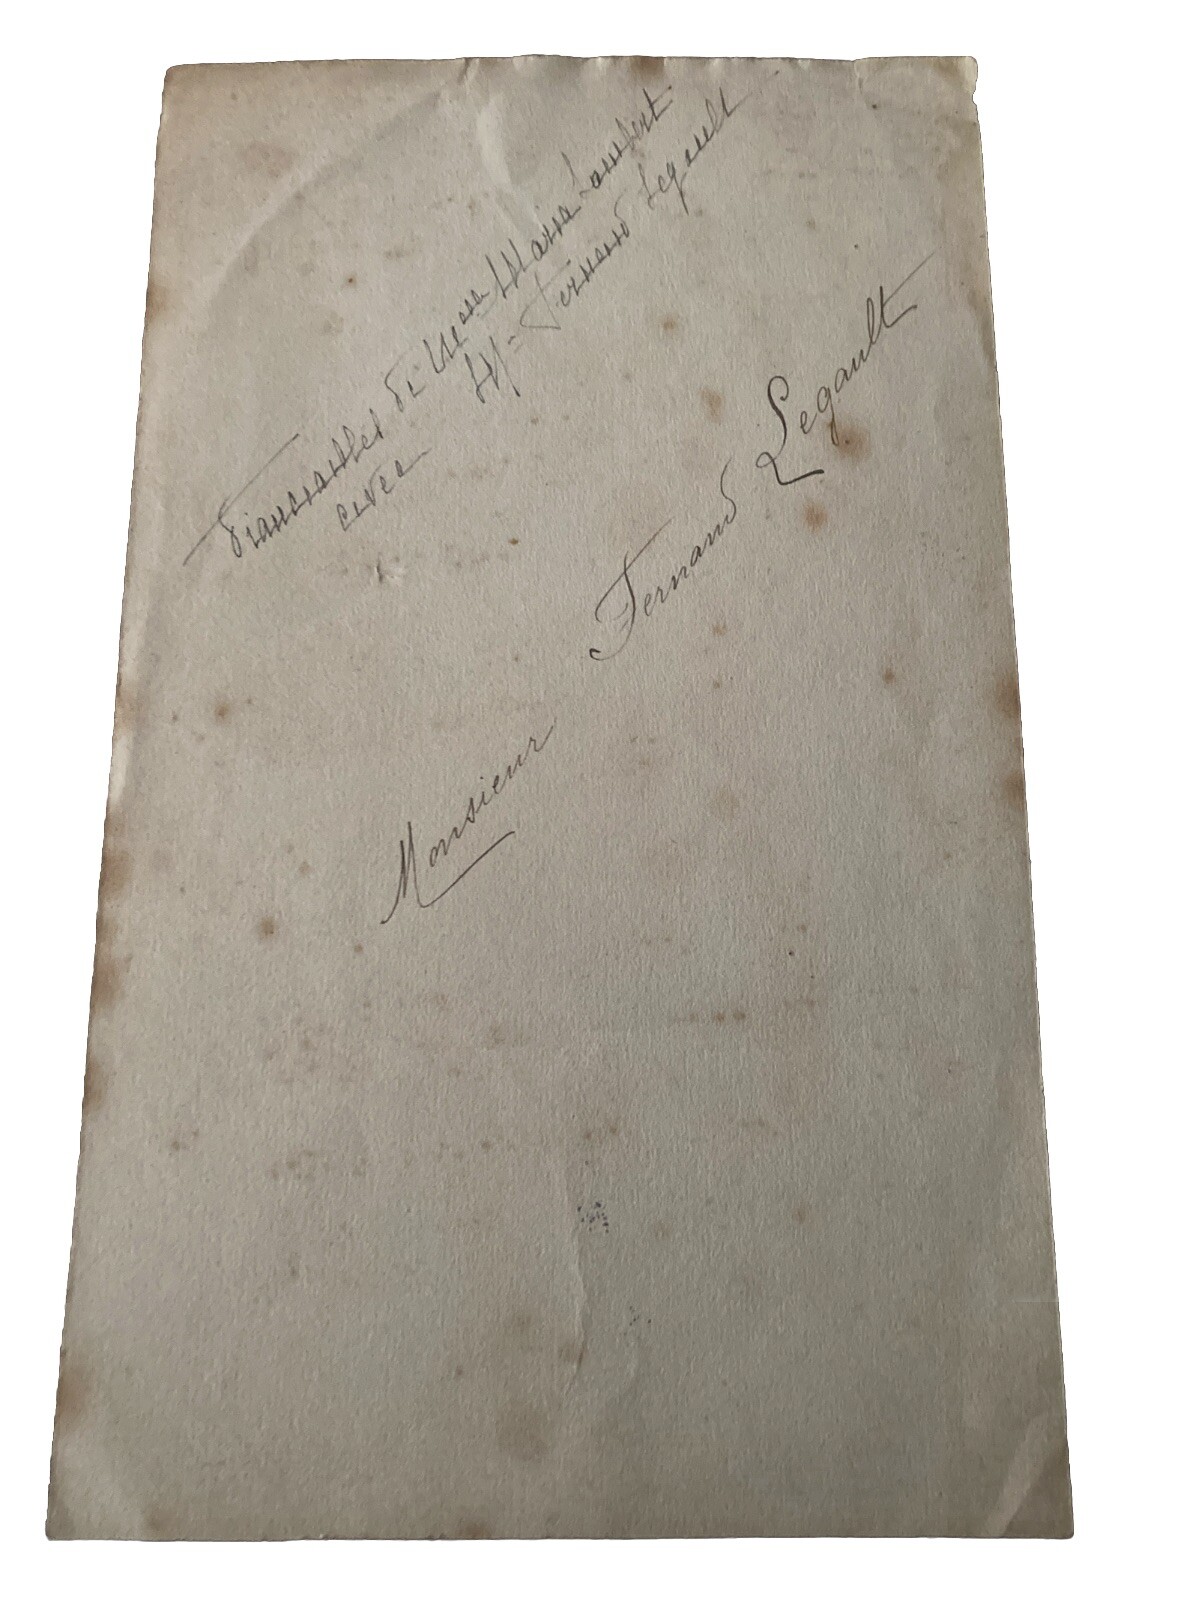 Fiancailles de Mlle Maria Lambert
avec M= Fernand Legault
Monsieur Fernand Legault